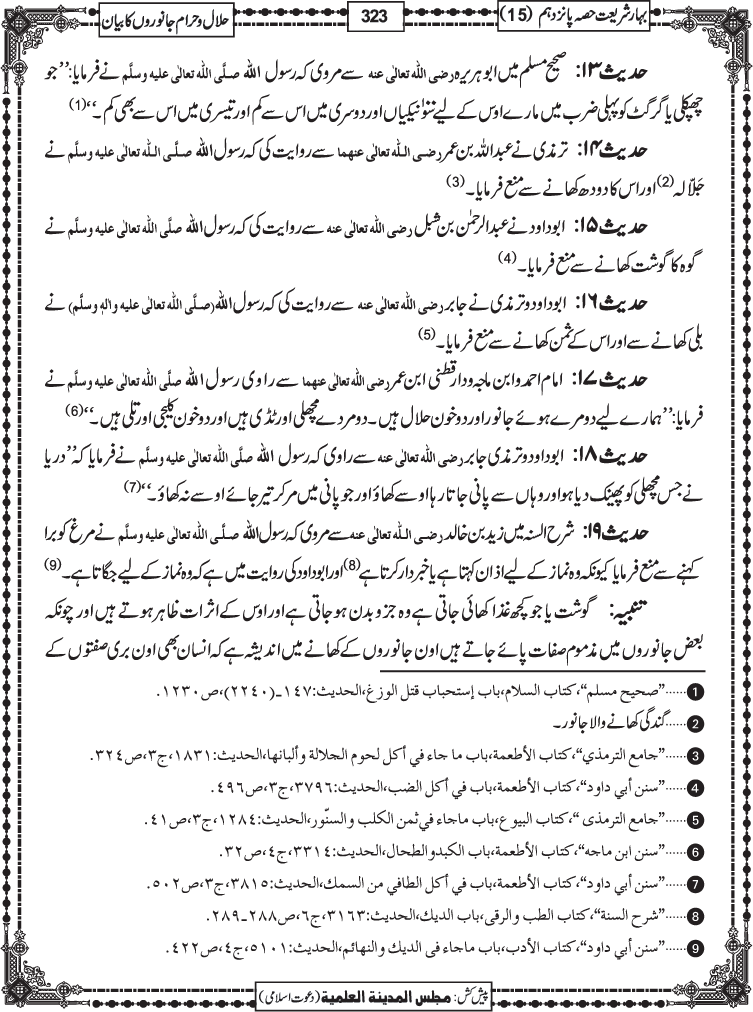 بہار شریعت حصہ پانزدہم (15)
323
حلال و حرام جانوروں کا بیان
حدیث ۱۳: صحیح مسلم میں ابوہریرہ رضی اللہ تعالی عنہ سے مروی کہ رسول اللہ صلَّی اللہ تعالٰی علیہ وسلَّم نے فرمایا: ’’جو
چھپکلی یا گرگٹ کو پہلی ضرب میں مارے اوس کے لیے سَو نیکیاں اور دوسری میں اس سے کم اور تیسری میں اس سے بھی کم۔‘‘(1)
حدیث ۱۴: ترمذی نے عبداللہ بن عمر رضی اللہ تعالٰی عنہما سے روایت کی کہ رسول اللہ صلَّی اللہ تعالٰی علیہ وسلَّم نے
جَلّالہ(2) اور اس کا دودھ کھانے سے منع فرمایا۔(3)
حدیث ۱۵: ابوداود نے عبدالرحمٰن بن شبل رضی اللہ تعالٰی عنہ سے روایت کی کہ رسول اللہ صلَّی اللہ تعالٰی علیہ وسلَّم نے
گوہ کا گوشت کھانے سے منع فرمایا۔(4)
حدیث ۱۶: ابوداود و ترمذی نے جابر رضی اللہ تعالٰی عنہ سے روایت کی کہ رسول اللہ (صلَّی اللہ تعالٰی علیہ والہٖ وسلَّم) نے
بلی کھانے سے اور اس کے ثمن کھانے سے منع فرمایا۔(5)
حدیث ۱۷: امام احمد و ابن ماجہ و دارقطنی ابن عمر رضی اللہ تعالٰی عنہما سے راوی رسول اللہ صلَّی اللہ تعالٰی علیہ وسلَّم نے
فرمایا: ’’ہمارے لیے دو مرے ہوئے جانور اور دو خون حلال ہیں۔ دو مردے مچھلی اور ٹڈی ہیں اور دو خون کلیجی اور تلی ہیں۔‘‘(6)
حدیث ۱۸: ابوداود و ترمذی جابر رضی اللہ تعالٰی عنہ سے راوی کہ رسول اللہ صلَّی اللہ تعالٰی علیہ وسلَّم نے فرمایا کہ ’’دریا
نے جس مچھلی کو پھینک دیا ہو اور وہاں سے پانی جاتا رہا اوسے کھاؤ اور جو پانی میں مر کر تیر جائے اوسے نہ کھاؤ۔‘‘(7)
حدیث ۱۹: شرح السنہ میں زید بن خالد رضی اللہ تعالٰی عنہ سے مروی کہ رسول اللہ صلَّی اللہ تعالٰی علیہ وسلَّم نے مرغ کو برا
کہنے سے منع فرمایا کیونکہ وہ نماز کے لیے اذان کہتا ہے یا خبردار کرتا ہے(8) اور ابوداود کی روایت میں ہے کہ وہ نماز کے لیے جگاتا ہے۔(9)
تنبیہ: گوشت یا جو کچھ غذا کھائی جاتی ہے وہ جزو بدن ہو جاتی ہے اور اوس کے اثرات ظاہر ہوتے ہیں اور چونکہ
بعض جانوروں میں مذموم صفات پائے جاتے ہیں اون جانوروں کے کھانے میں اندیشہ ہے کہ انسان بھی اون بری صفتوں کے
1 ......”صحیح مسلم“،کتاب السلام،باب إستحباب قتل الوزغ،الحدیث:۱۴۷۔(۲۲۴۰)،ص۱۲۳۰.
2 ......گندگی کھانے والا جانور۔
3 ......”جامع الترمذي“،کتاب الأطعمة،باب ما جاء في أکل لحوم الجلالة وألبانها،الحدیث:۱۸۳۱،ج۳،ص۳۲۴.
4 ......”سنن أبي داود“،کتاب الأطعمة،باب في أکل الضب،الحدیث:۳۷۹۶،ج۳،ص۴۹۶.
5 ......”جامع الترمذی“،کتاب البیوع،باب ماجاء في ثمن الکلب والسنّور،الحدیث:۱۲۸۴،ج۳،ص۴۱.
6 ......”سنن ابن ماجه“،کتاب الأطعمة،باب الکبد والطحال،الحدیث:۳۳۱۴،ج۴،ص۳۲.
7 ......”سنن أبي داود“،کتاب الأطعمة،باب في أکل الطافي من السمك،الحدیث:۳۸۱۵،ج۳،ص۵۰۲.
8 ......”شرح السنة“،کتاب الطب والرقی،باب الدیك،الحدیث:۳۱۶۳،ج۶،ص۲۸۸۔۲۸۹.
9 ......”سنن أبي داود“،کتاب الأدب،باب ماجاء فی الدیك والنهائم،الحدیث:۵۱۰۱،ج۴،ص۴۲۲.
پیش کش: مجلس المدینة العلمیة (دعوت اسلامی)